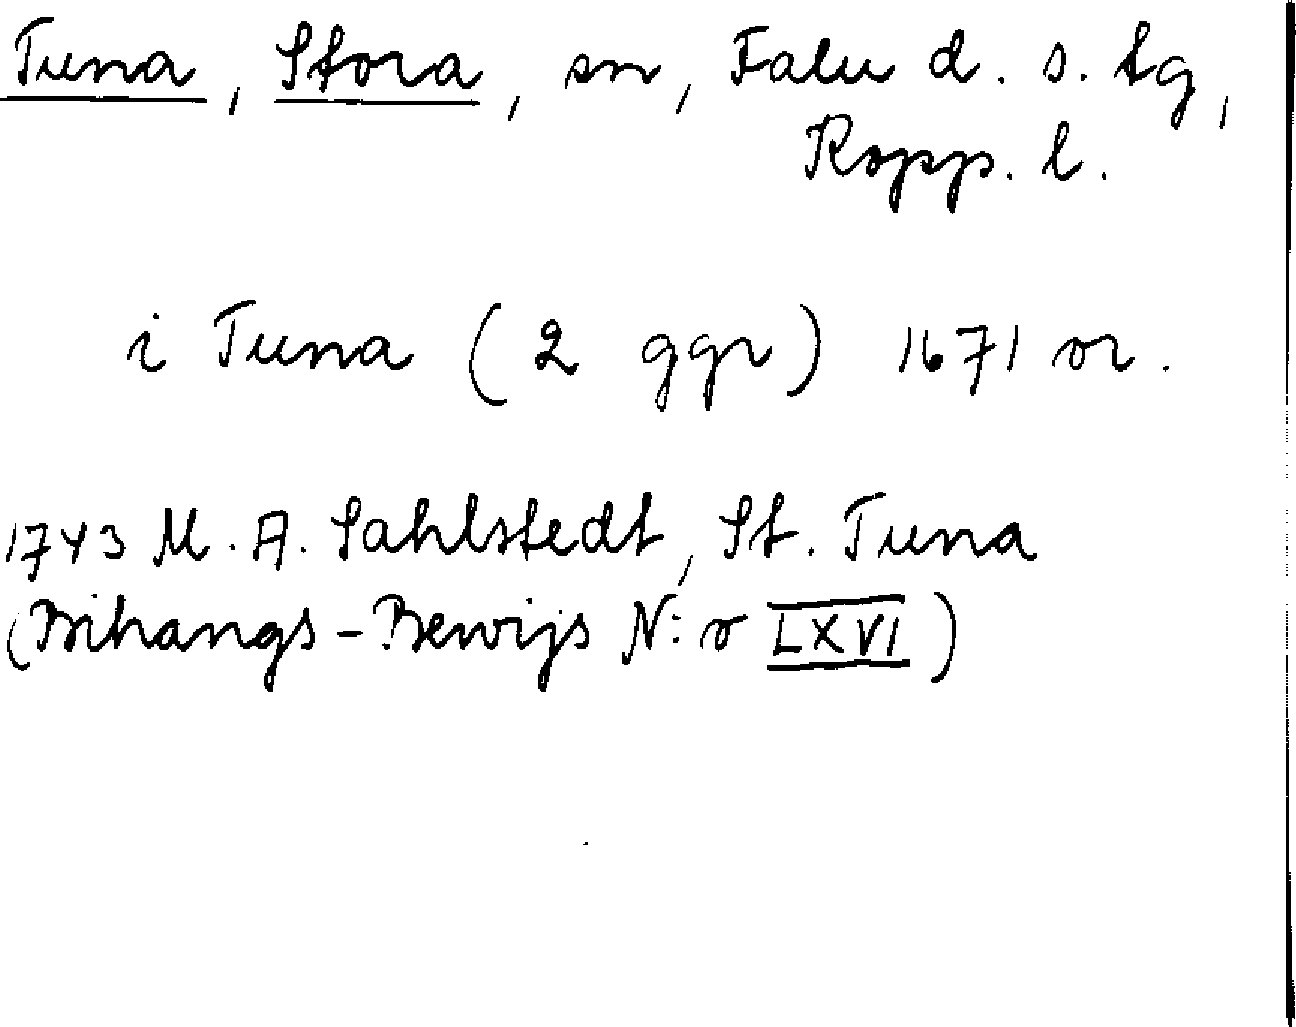 Tuna, Stora, sn, Falu d. s. tg,
Kopp. l.
i Tuna (2 ggr) 1671 or.
1743 M. A. Sahlstedt, St. Tuna
(Bihangs-Bewijs N:o LXVI)